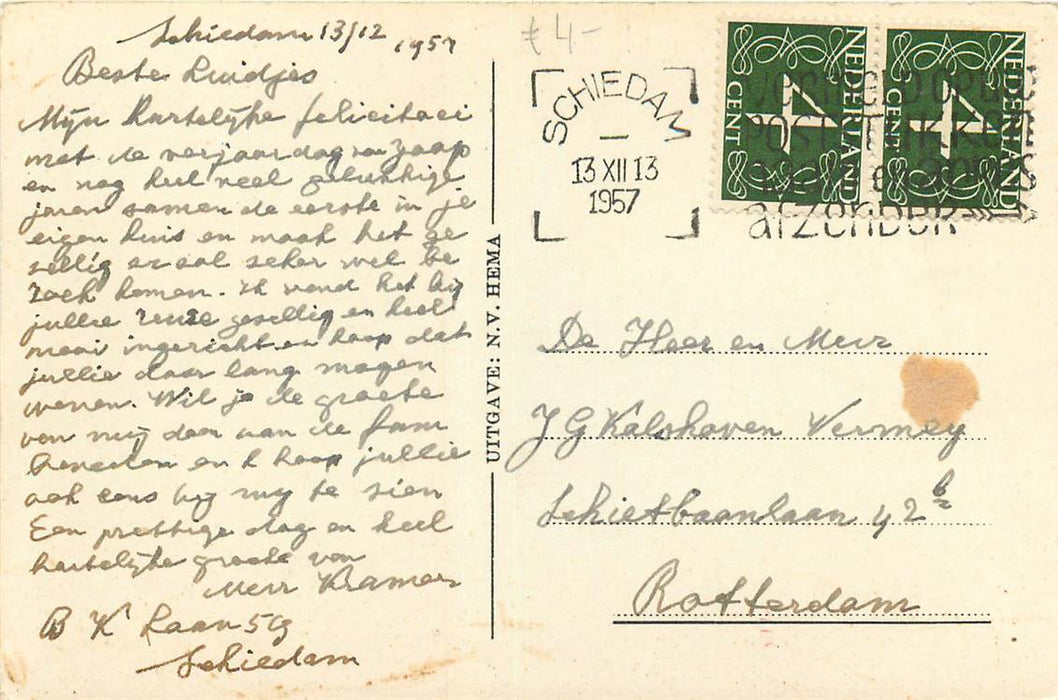 Schiedam 13/12 1957
Beste Luidjes
Mijn Hartelijke felicitaei
met de verjaardag van Jaap
en nog heel veel gelukkige
jaren samen de eerste in je
eigen huis en maak het ge
sellig er sal seker wel be
zoek komen. Ik vond het bij
jullie reuze gesellig en heel
mooi ingericht en hoop dat
jullie daar lang mogen
wonen. Wil je de groete
van mij doen aan de fam
beneden en k hoop jullie
ook eens bij mij te sien
Een prettige dag en heel
hartelijke groete van
Mevr Kramer
B K Laan 59
Schiedam
UITGAVE: N.V. HEMA
£ 4-
SCHIEDAM
13 XII 13
1957
NEDERLAND
4
CENT
NEDERLAND
4
CENT
POSTSTUKKEN
afzender
De Heer en Mevr
J G Kalshoven Vermey
Schietbaanlaan 42 b
Rotterdam